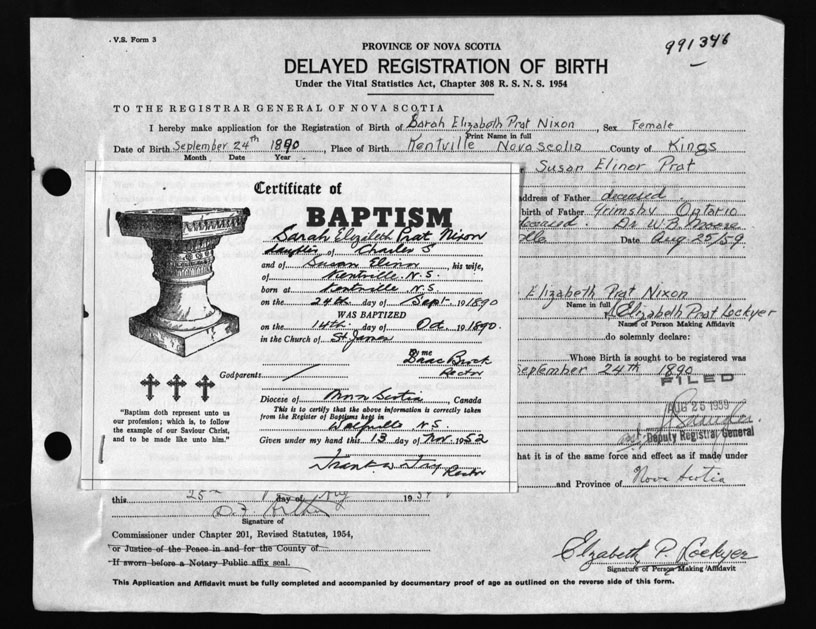 V.S. Form 3
991346
PROVINCE OF NOVA SCOTIA
DELAYED REGISTRATION OF BIRTH
Under the Vital Statistics Act, Chapter 308 R. S. N. S. 1954
TO THE REGISTRAR GENERAL OF NOVA SCOTIA
I hereby make application for the Registration of Birth of Sarah Elizabeth Prat Nixon, Sex Female
Print Name in full
Date of Birth September 24th 1890, Place of Birth Kentville Nova Scotia County of Kings
Month Date Year
Susan Elinor Prat
address of Father deceased
birth of Father Grimsby Ontario
deceased. Dr W.B. Moore
Date Aug 25/59
Elizabeth Prat Nixon
Name in full
Elizabeth Prat Lockyer
Name of Person Making Affidavit
do solemnly declare:
Whose Birth is sought to be registered was
September 24th 1890
FILED
AUG 25 1959
Deputy Registrar General
that it is of the same force and effect as if made under
and Province of Nova Scotia
Certificate of
BAPTISM
Sarah Elizabeth Prat Nixon
daughter of Charles S
and of Susan Elinor, his wife,
of Kentville N.S.
born at Kentville N.S.
on the 24th day of Sept. 1890
WAS BAPTIZED
on the 14th day of Oct. 1890.
in the Church of St James
by me Isaac Brock
Rector
Godparents
Diocese of Nova Scotia, Canada
This is to certify that the above information is correctly taken
from the Register of Baptisms kept in
Wolfville N.S.
Given under my hand this 13 day of Nov. 1952
Rector
"Baptism doth represent unto us
our profession; which is, to follow
the example of our Saviour Christ,
and to be made like unto him."
this 25th day of Aug 1959
Signature of
Commissioner under Chapter 201, Revised Statutes, 1954,
or Justice of the Peace in and for the County of
If sworn before a Notary Public affix seal.
Elizabeth P. Lockyer
Signature of Person Making Affidavit
This Application and Affidavit must be fully completed and accompanied by documentary proof of age as outlined on the reverse side of this form.